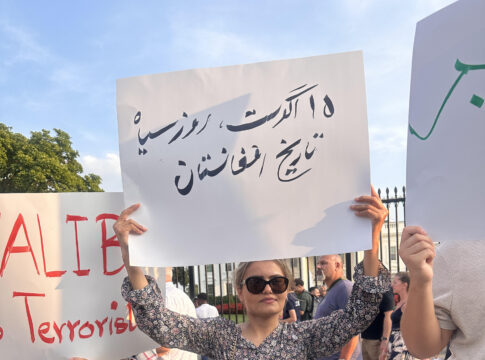 ۱۵ اگست، روز سیاه
تاریخ افغانستان
TALIB
Terrorist